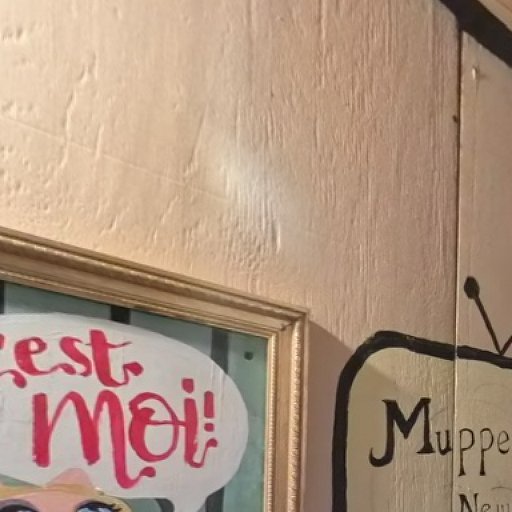 c'est
moi!
Muppe
New